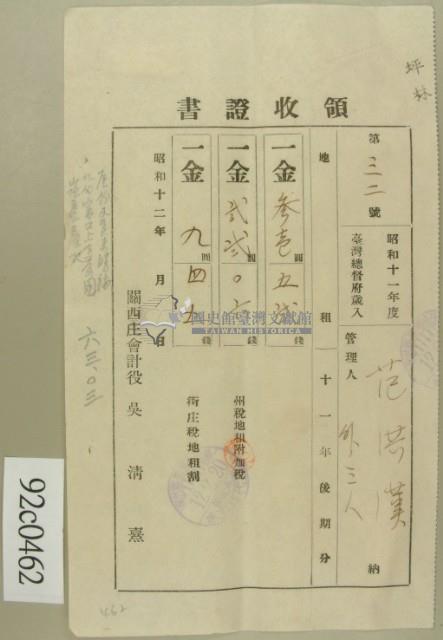 坪林
領收證書
第三二號
昭和十一年度
臺灣總督府歲入
管理人 范洪漢
外三人
納
地租 十一年後期分
一金 參壱圓五弐錢
一金 弐弐圓〇六錢
州稅地租附加稅
一金 九圓四五錢
街庄稅地租割
昭和十二年 月 日
關西庄會計役 吳淸熹
六三、〇三
國史館臺灣文獻館
TAIWAN HISTORICA
92c0462
462